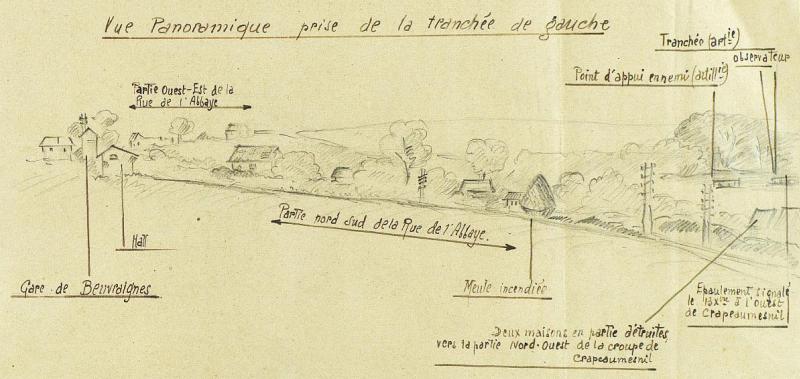 Vue Panoramique prise de la tranchée de gauche
Tranchée (artie)
observateur
Point d'appui ennemi (artillie)
Partie Ouest-Est de la
Rue de l'Abbaye
Partie nord sud de la Rue de l'Abbaye.
Hall
Gare de Beuvraignes
Meule incendiée
Epaulement signalé
le à l'Ouest
de Crapeaumesnil
Deux maisons en partie détruites
vers la partie Nord-Ouest de la croupe de
Crapeaumesnil